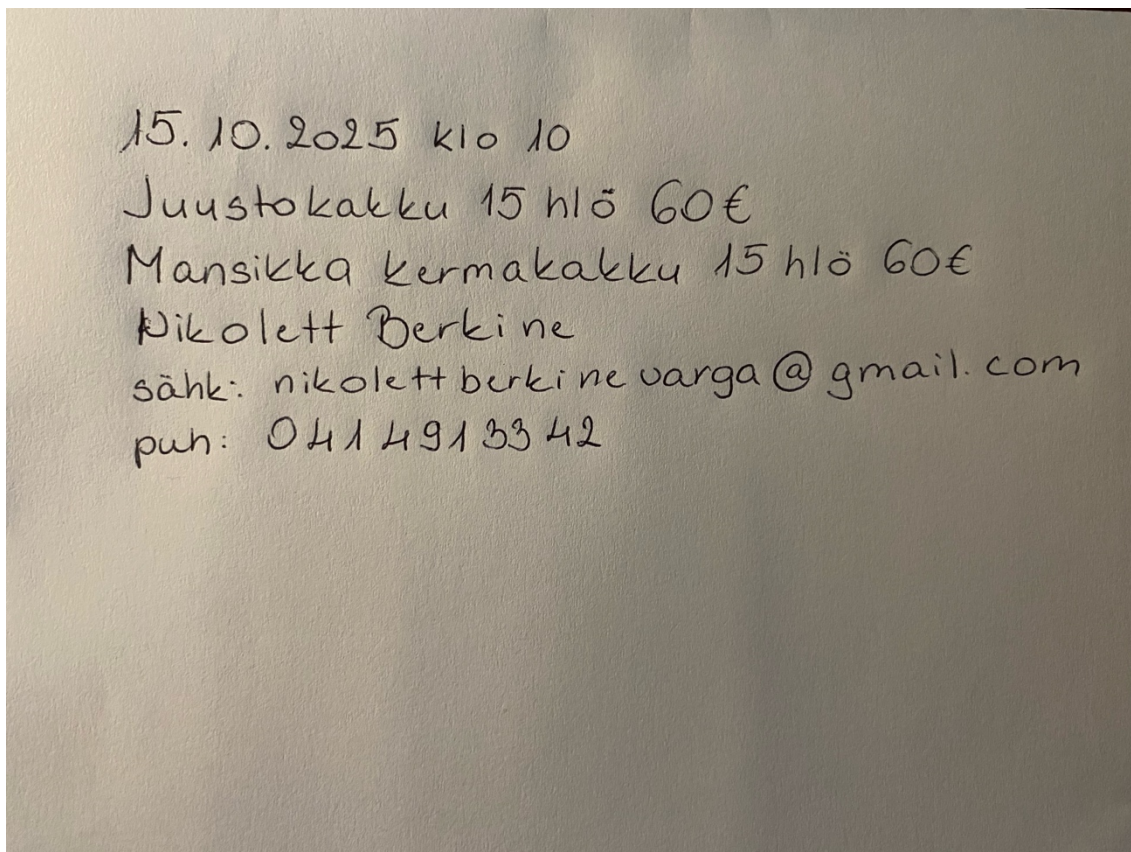 15.10.2025 klo 10
Juustokakku 15 hlö 60€
Mansikka kermakakku 15 hlö 60€
Nikolett Berkine
sähk: nikolettberkinevarga@gmail.com
puh: 0414913342